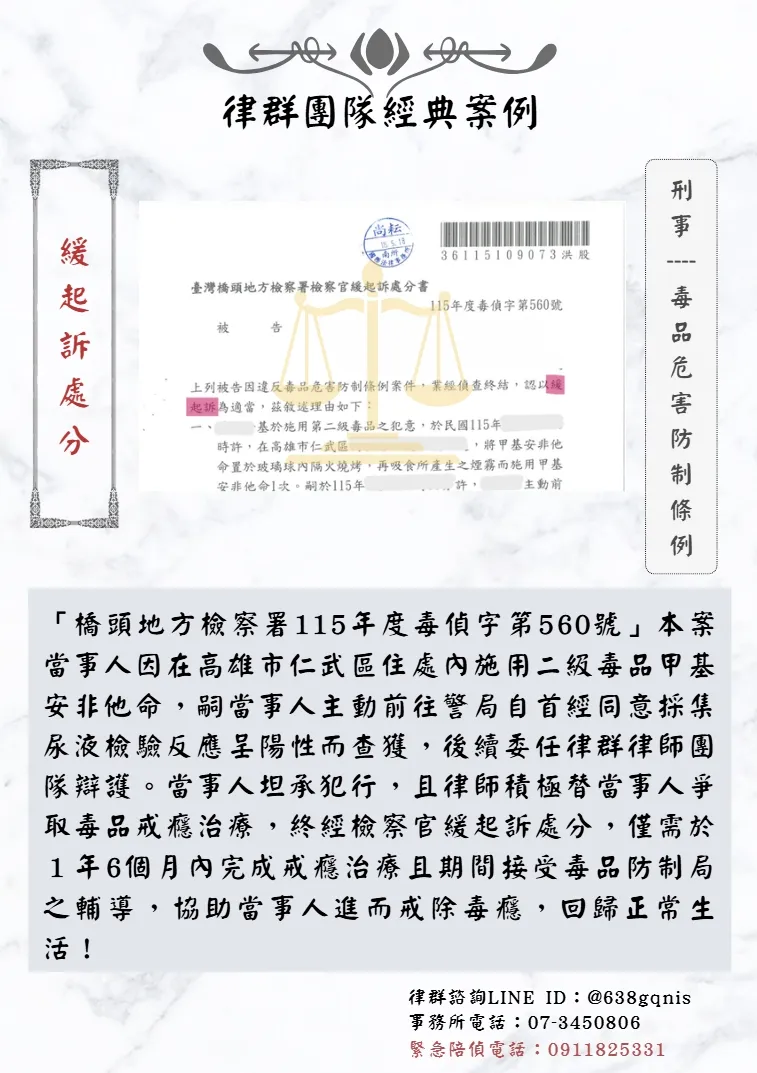 律群團隊經典案例
緩起訴處分
刑事----毒品危害防制條例
尚耘
115.5.18
36115109073洪股
臺灣橋頭地方檢察署檢察官緩起訴處分書
115年度毒偵字第560號
被 告
上列被告因違反毒品危害防制條例案件,業經偵查終結,認以緩
起訴為適當,茲敘述理由如下:
一、 基於施用第二級毒品之犯意,於民國115年
時許,在高雄市仁武區 ,將甲基安非他
命置於玻璃球內隔火燒烤,再吸食所產生之煙霧而施用甲基
安非他命1次。嗣於115年 許, 主動前
「橋頭地方檢察署115年度毒偵字第560號」本案
當事人因在高雄市仁武區住處內施用二級毒品甲基
安非他命,嗣當事人主動前往警局自首經同意採集
尿液檢驗反應呈陽性而查獲,後續委任律群律師團
隊辯護。當事人坦承犯行,且律師積極替當事人爭
取毒品戒癮治療,終經檢察官緩起訴處分,僅需於
1年6個月內完成戒癮治療且期間接受毒品防制局
之輔導,協助當事人進而戒除毒癮,回歸正常生
活!
律群諮詢LINE ID:@638gqnis
事務所電話:07-3450806
緊急陪偵電話:0911825331